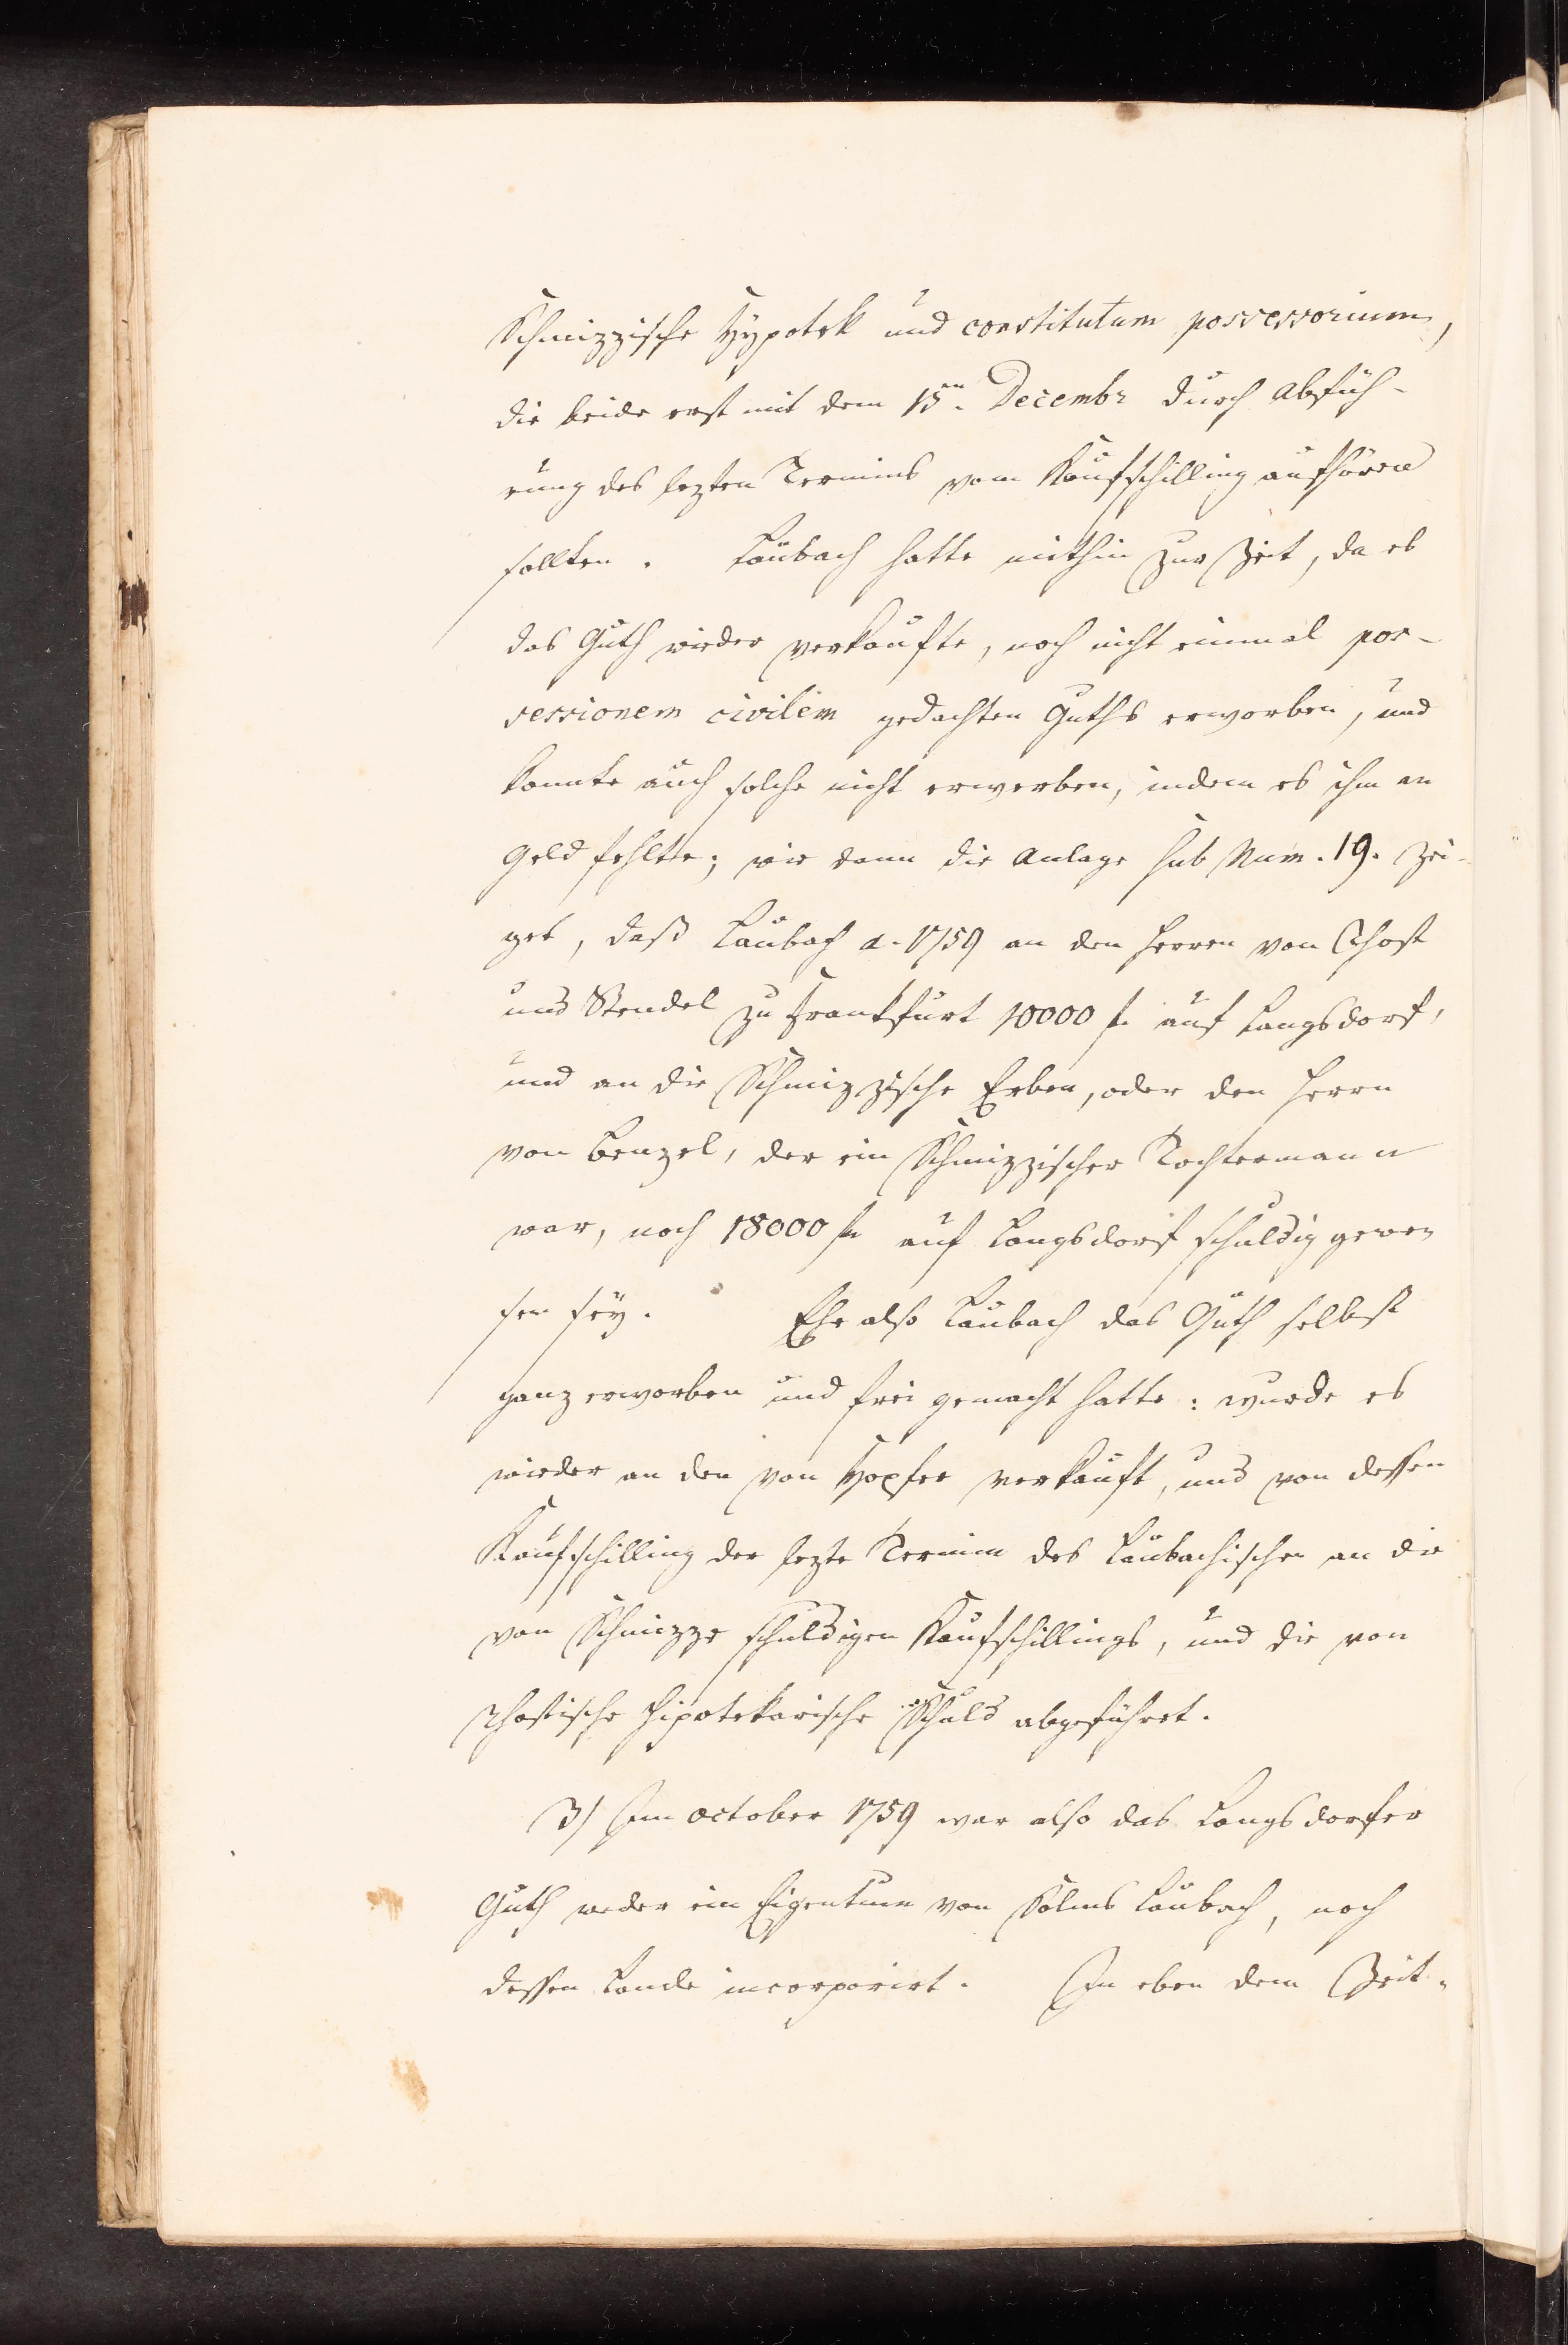 Schmizzische Hypotek und constitutum possessorium,
die beide erst mit dem 15ten. Decembr durch Abfüh-
rung des lezten Termins vom Kaufschilling aufhören
sollten. Laubach hatte mithin zur Zeit, da es
das Guth wieder verkaufte, noch nicht einmal pos-
sessionem civilem gedachten Guths erworben, und
konnte auch solche nicht erwerben, indem es ihm an
Geld fehlte; wie dann die Anlage sub Num. 19. zei-
get, daß Laubach a. 1759 an den Herren von
und Stendel zu Frankfurt 10000 f. auf Langsdorf,
und an die Schmizzische Erben, oder den Herrn
von Benzel, der ein Schmizzischer Tochtermann
war, noch 18000 f. auf Langsdorf schuldig gewe-
sen sey. Ehe also Laubach das Guth selbst
ganz erworben und frei gemacht hatte: wurde es
wieder an den von Hopfer verkauft, und von dessen
Kaufschilling der lezte Termin des Laubachischen an die
von Schmizze schuldigen Kaufschillings, und die von
hipotekarische Schuld abgeführet.
3) Im October 1759 war also das Langsdorfer
Guth weder ein Eigentum von Solms Laubach, noch
dessen Lande incorporirt. In eben dem Zeit-